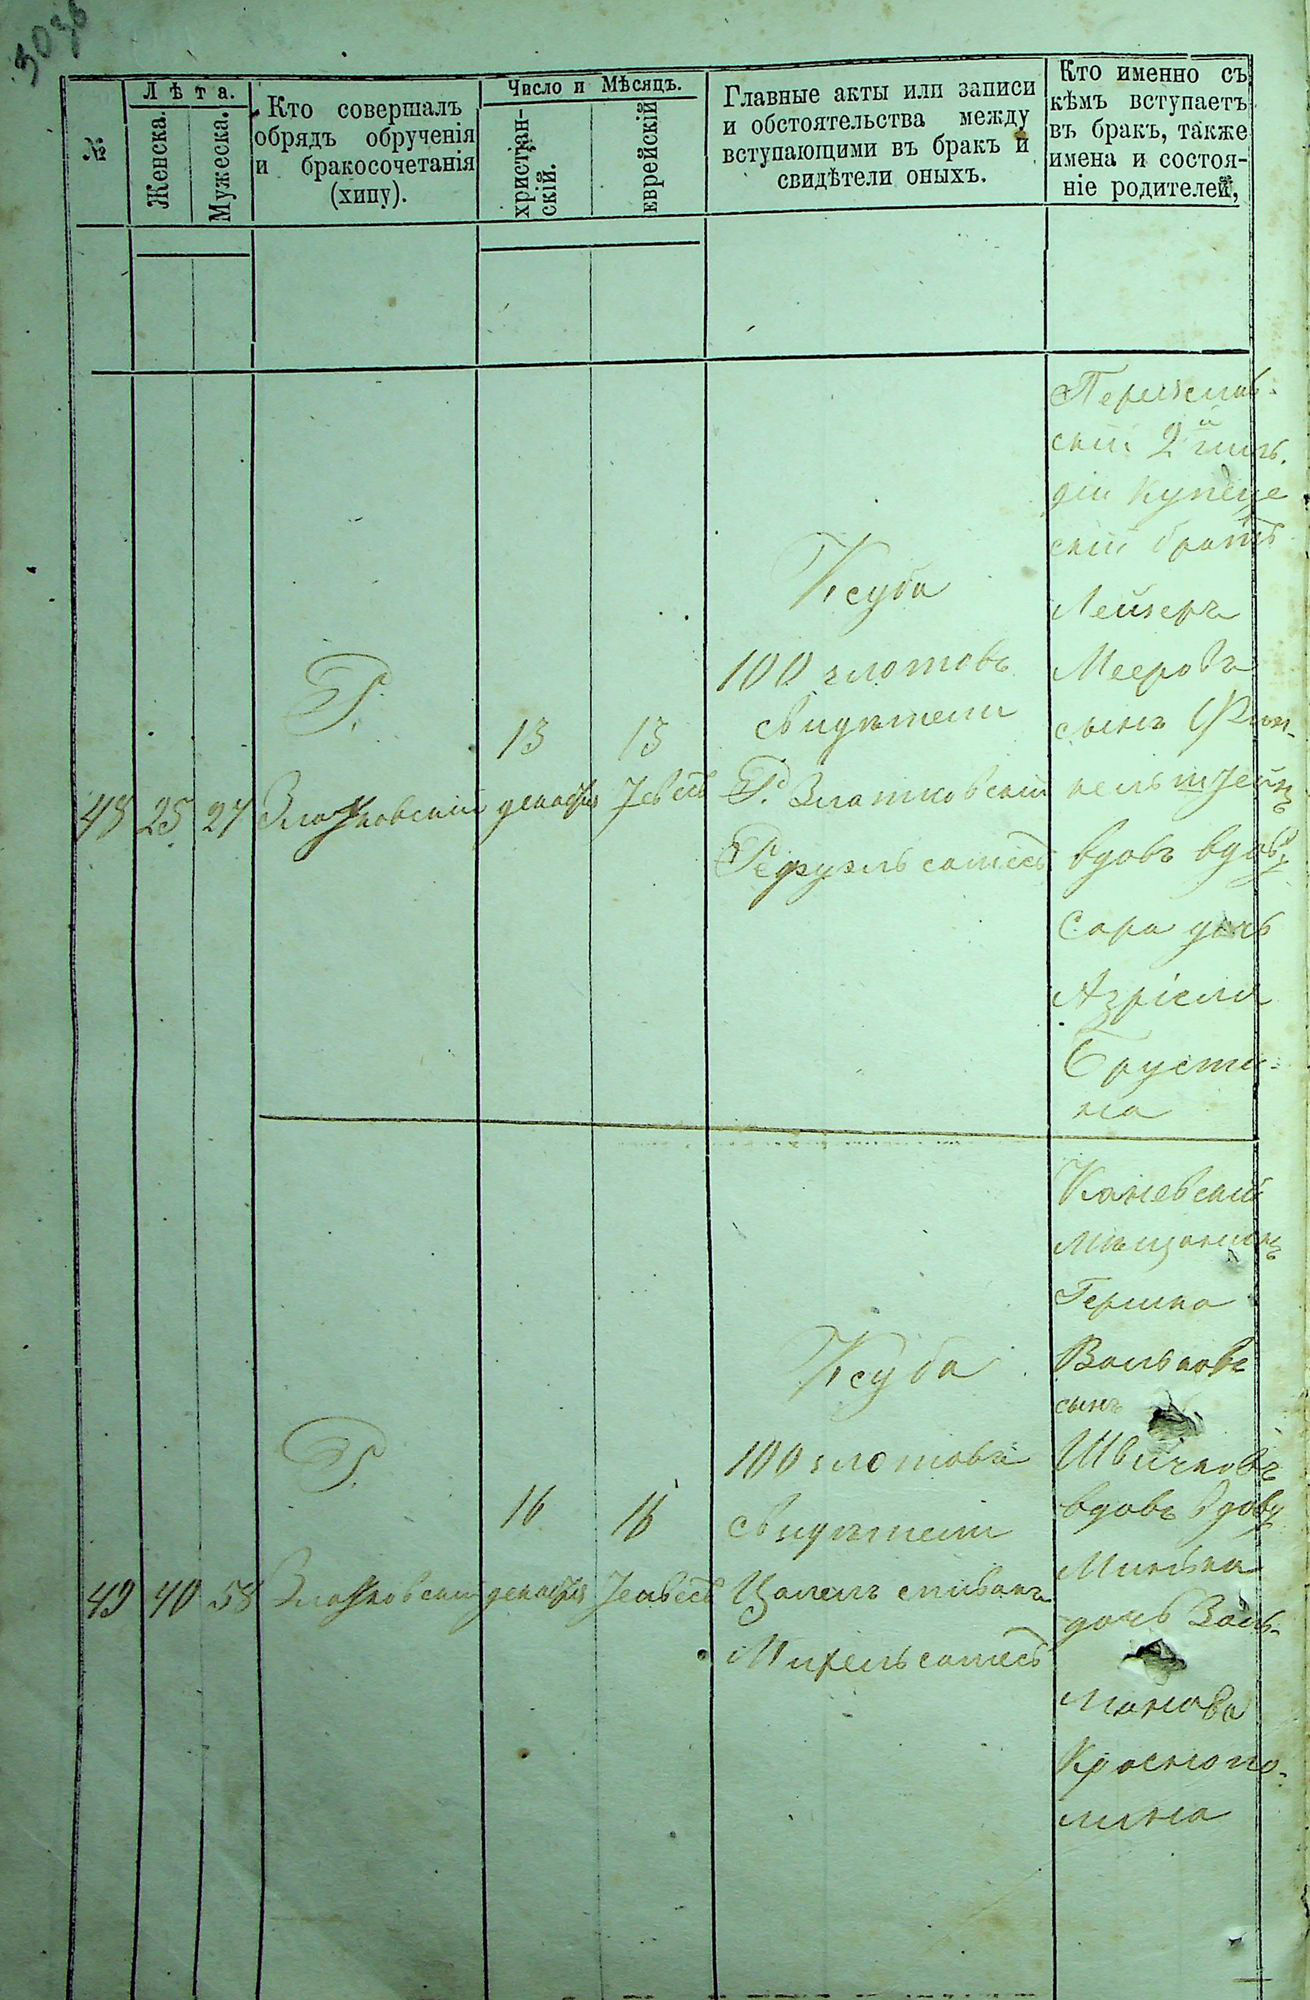 №
Лѣта.
Женска.
Мужеска.
Кто совершалъ
обрядъ обрученія
и бракосочетанія
(хипу).
Число и Мѣсяцъ.
христіан-
скій.
еврейскій
Главные акты или записи
и обстоятельства между
вступающими въ бракъ и
свидѣтели оныхъ.
Кто именно съ
кѣмъ вступаетъ
въ бракъ, также
имена и состоя-
ніе родителей,
48
25
27
Р.
Златковскій
13
декабря
13
Тевесъ
Ксуба
100 злотовъ
свидѣтели
Р. Златковскій
скій 2й гиль-
діи Купече
скій братъ
Лейзеръ
Мееровъ
сынъ Фин-
кельштейнъ
вдовъ вдову
Сара дочь
Азріеля
Брусти-
на
49
40
58
Р.
Златковскій
16
декабря
16
Ксуба
100 злотовъ
свидѣтели
Каневскій
мѣщанинъ
Гершко
Вольковъ
сынъ
вдовъ вдову
Минька
дочь Заль-
манова
Краснопо-
лина